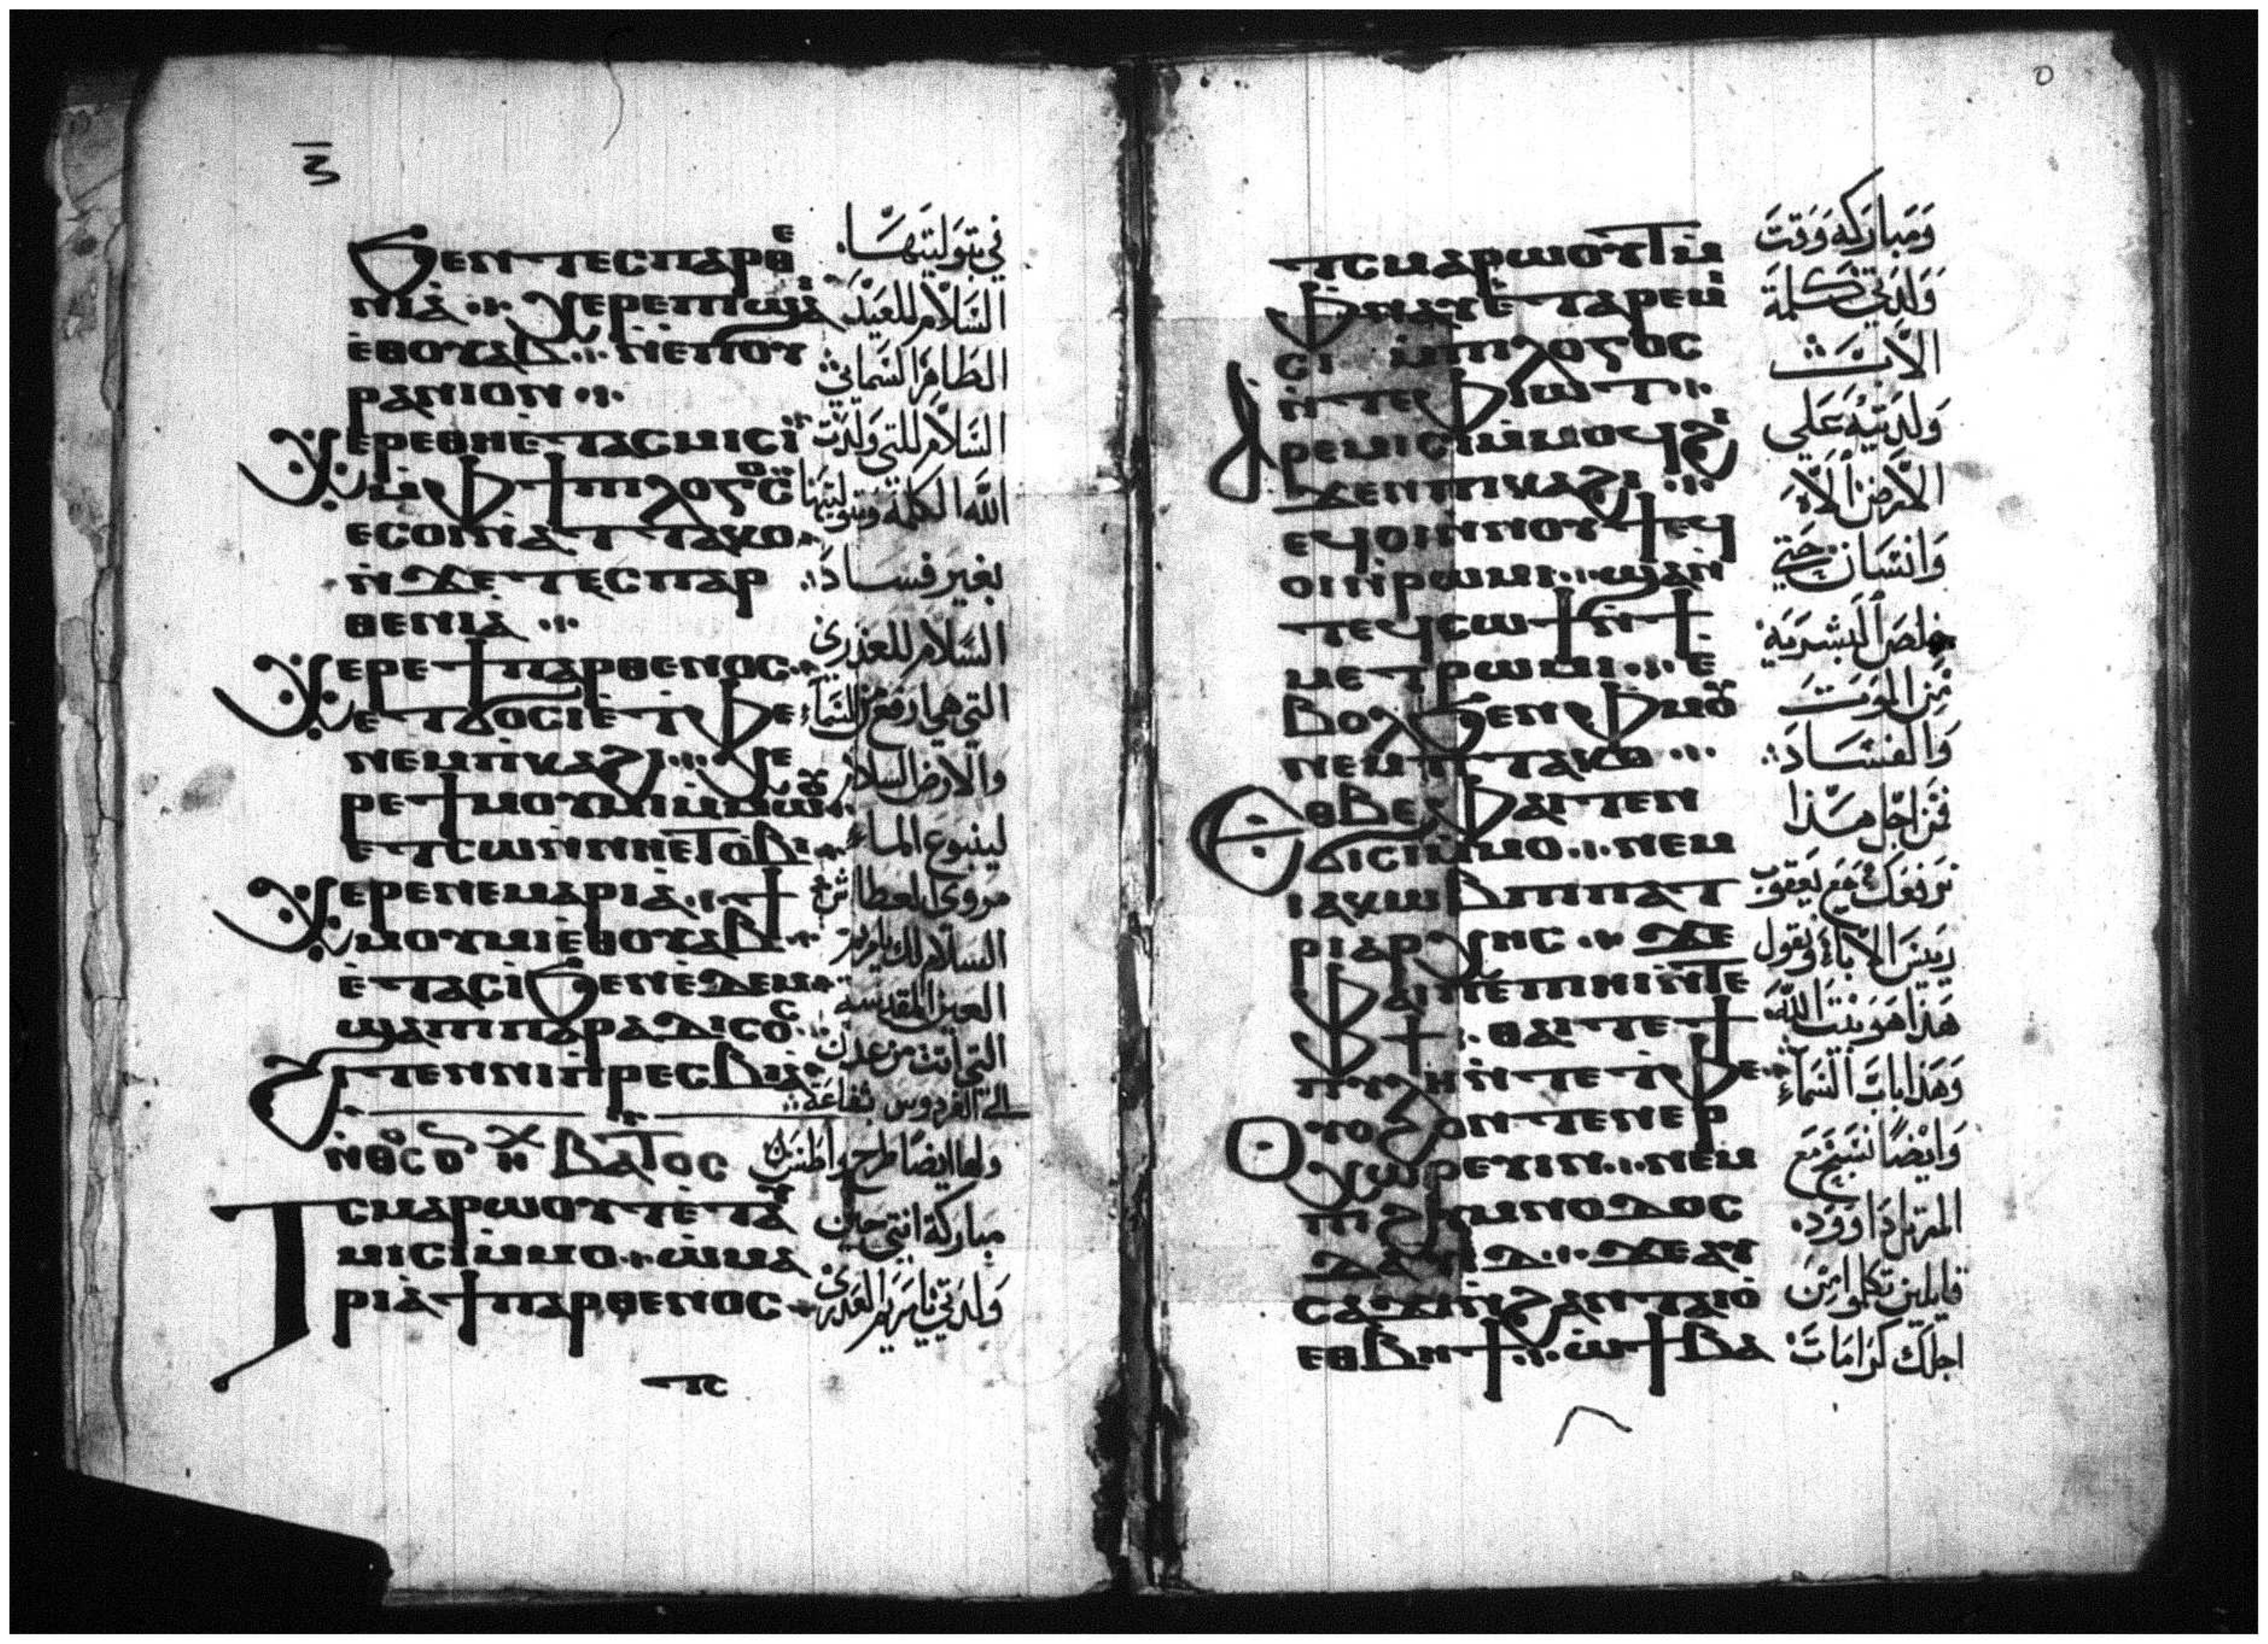 ϧⲉⲛⲧⲉⲥⲡⲁⲣⲑⲉ
ⲛⲓⲁ̀ ⲭⲉⲣⲉⲡⲓϣⲁⲓ
ⲉ̀ⲑⲟⲩⲁⲃ ⲛ̀ⲉⲡⲟⲩ
ⲣⲁⲛⲓⲟⲛ
ⲭⲉⲣⲉⲑⲏⲉⲧⲁⲥⲙⲓⲥⲓ
ⲙ̀ⲫϯⲡⲓⲗⲟⲅⲟⲥ
ⲉⲥⲟⲓⲛ̀ⲁⲧⲧⲁⲕⲟ
ⲛ̀ϫⲉⲧⲉⲥⲡⲁⲣ
ⲑⲉⲛⲓⲁ̀
ⲭⲉⲣⲉϯⲡⲁⲣⲑⲉⲛⲟⲥ
ⲉⲧϭⲟⲥⲓⲉ̀ⲧⲫⲉ
ⲛⲉⲙⲡⲓⲕⲁϩⲓ ⲭⲉ
ⲣⲉϯⲙⲟⲩⲙⲓⲙ̀ⲙⲱⲟⲩ
ⲉⲧⲥⲱⲛ̀ⲛⲏⲉⲧⲟⲃⲓ
ⲭⲉⲣⲉⲛⲉⲙⲁⲣⲓⲁ̀ ϯ
ⲙⲟⲩⲙⲓⲉ̀ⲑⲟⲩⲁⲃ
ⲉ̀ⲧⲁⲥⲓ̀ϧⲉⲛⲉ̀ⲇⲉⲙ
ϣⲁⲡⲓⲡⲁⲣⲁⲇⲓⲥⲟⲥ
ϩⲓⲧⲉⲛⲛⲓⲡ̀ⲣⲉⲥⲃⲓⲁ̀
ⲃⲁⲧⲟⲥ
ⲧⲥⲙⲁⲣⲱⲟⲩⲧⲉ̀ⲧⲁ
ⲙⲓⲥⲓⲙ̀ⲙⲟ ⲱ̀ⲙⲁ
ⲣⲓⲁ̀ϯⲡⲁⲣⲑⲉⲛⲟⲥ
ⲧⲥ
في بتوليتها
السلام للعيد
الطاهر السمائي
السلام للتي ولدت
الله الكلمة وبتوليتها
بغير فساد
السلام للعذري
التي هي ارفع من السماء
والارض السلام
لينبوع الماء
مروي العطاش
السلام لك يا مريم
العين المقدسة
التي اتت من عدن
الي الفردوس بشفاعة
ولها ايضا طرح واطس
مباركة انتي حين
ولدتي يا مريم العذري
ⲧⲥⲙⲁⲣⲱⲟⲩⲧ
ⲫⲛⲁⲩⲉ̀ⲧⲁⲣⲉⲙⲓ
ⲥⲓ ⲙ̀ⲡⲓⲗⲟⲅⲟⲥ
ⲛ̀ⲧⲉⲫⲓⲱⲧ
ⲁⲣⲉⲙⲓⲥⲓⲙ̀ⲙⲟϥϩⲓ
ϫⲉⲛⲡⲓⲕⲁϩⲓ
ⲉϥⲟⲓⲛ̀ⲛⲟⲩϯⲉϥ
ⲟⲓⲛ̀ⲣⲱⲙⲓ ϣⲁⲛ
ⲧⲉϥⲥⲱϯⲛ̀ϯ
ⲙⲉⲧⲣⲱⲙⲓ ⲉ̀
ⲃⲟⲗϧⲉⲛⲫⲙⲟⲩ
ⲛⲉⲙⲡⲧⲁⲕⲟ
ⲉⲑⲃⲉⲫⲁⲓⲧⲉⲛ
ϭⲓⲥⲓⲙ̀ⲙⲟ ⲛⲉⲙ
ⲓⲁⲕⲱⲃⲡⲓⲡⲁⲧ
ⲣⲓⲁⲣⲭⲏⲥ ϫⲉ
ⲫⲁⲓⲡⲉⲡⲏⲓⲛ̀ⲧⲉ
ⲫϯ ⲑⲁⲓⲧⲉϯ
ⲡⲩⲗⲏⲛ̀ⲧⲉⲧⲫⲉ
ⲟⲩⲟϩⲟⲛⲧⲉⲛⲉⲣ
ⲭⲱⲣⲉⲩⲓⲛ ⲛⲉⲙ
ⲡⲓϩⲩⲙⲛⲟⲇⲟⲥ
ⲇⲁⲩⲓⲇ ϫⲉⲁⲩ
ⲥⲁϫⲓⲛ̀ϩⲁⲛⲧⲁⲓⲟ̀
ⲉⲑⲃⲏϯ ⲱ̀ϯⲃⲁ
ومباركة وقت
ولدتي كلمة
الاب
ولدتيه علي
الارض الاه
وانسان حتي
خلص البشرية
من الموت
والفساد
فمن اجل هذا
نرفعك مع يعقوب
رييس الاباء ونقول
هذا هو بيت الله
وهذا باب السماء
وايضا نسبح مع
المرتل داوود
قايلين تكلموا من
اجلك كرامات